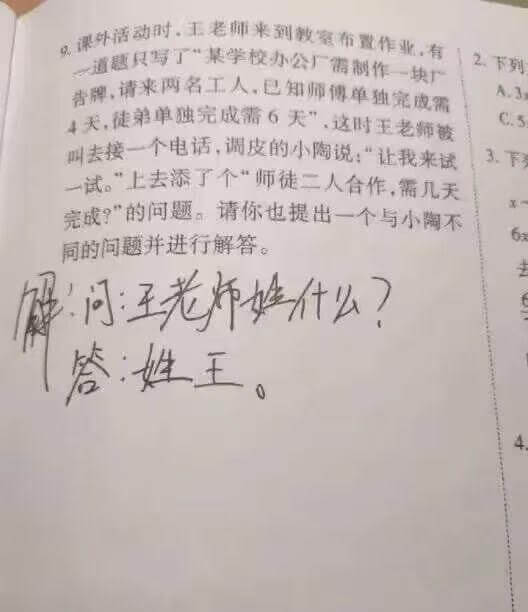 9. 课外活动时,王老师来到教室布置作业,有
一道题只写了“某学校办公厂需制作一块广
告牌,请来两名工人,已知师傅单独完成需
4天,徒弟单独完成需6天”,这时王老师被
叫去接一个电话,调皮的小陶说:“让我来试
一试。”上去添了个“师徒二人合作,需几天
完成?”的问题。请你也提出一个与小陶不
同的问题并进行解答。
解:问:王老师姓什么?
答:姓王。
2. 下列
A. 3x
C. 5
3. 下列
x-
6x
去
4.